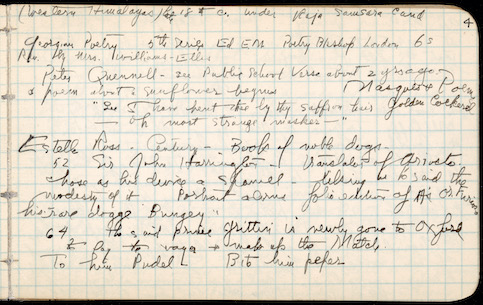 (Western Himalayas) 18th c. under Raja Samsara Cand
4
Georgian Poetry 5th Series Ed EM Poetry Bkshop London 6s
Rev. by Mrs. Williams-Ellis
Peter Quennell - see Public School Verse about 2 yrs ago.
a poem about a Sunflower begins Masque & Poem
"See I have bent thee by thy saffron hair Golden Cockerel
— oh most strange masker —"
Estelle Ross. Century - Book of noble dogs.
52 Sir John Harrington - translator of Ariosto.
chose as his device a Spaniel - the
modesty of it Portrait adorns folio edition of his Or. Furioso
his rare dogge Bungey"
64 The said prince Griffin is newly gone to Oxford
to make up the Match.
To him Pudel - Bite him peper